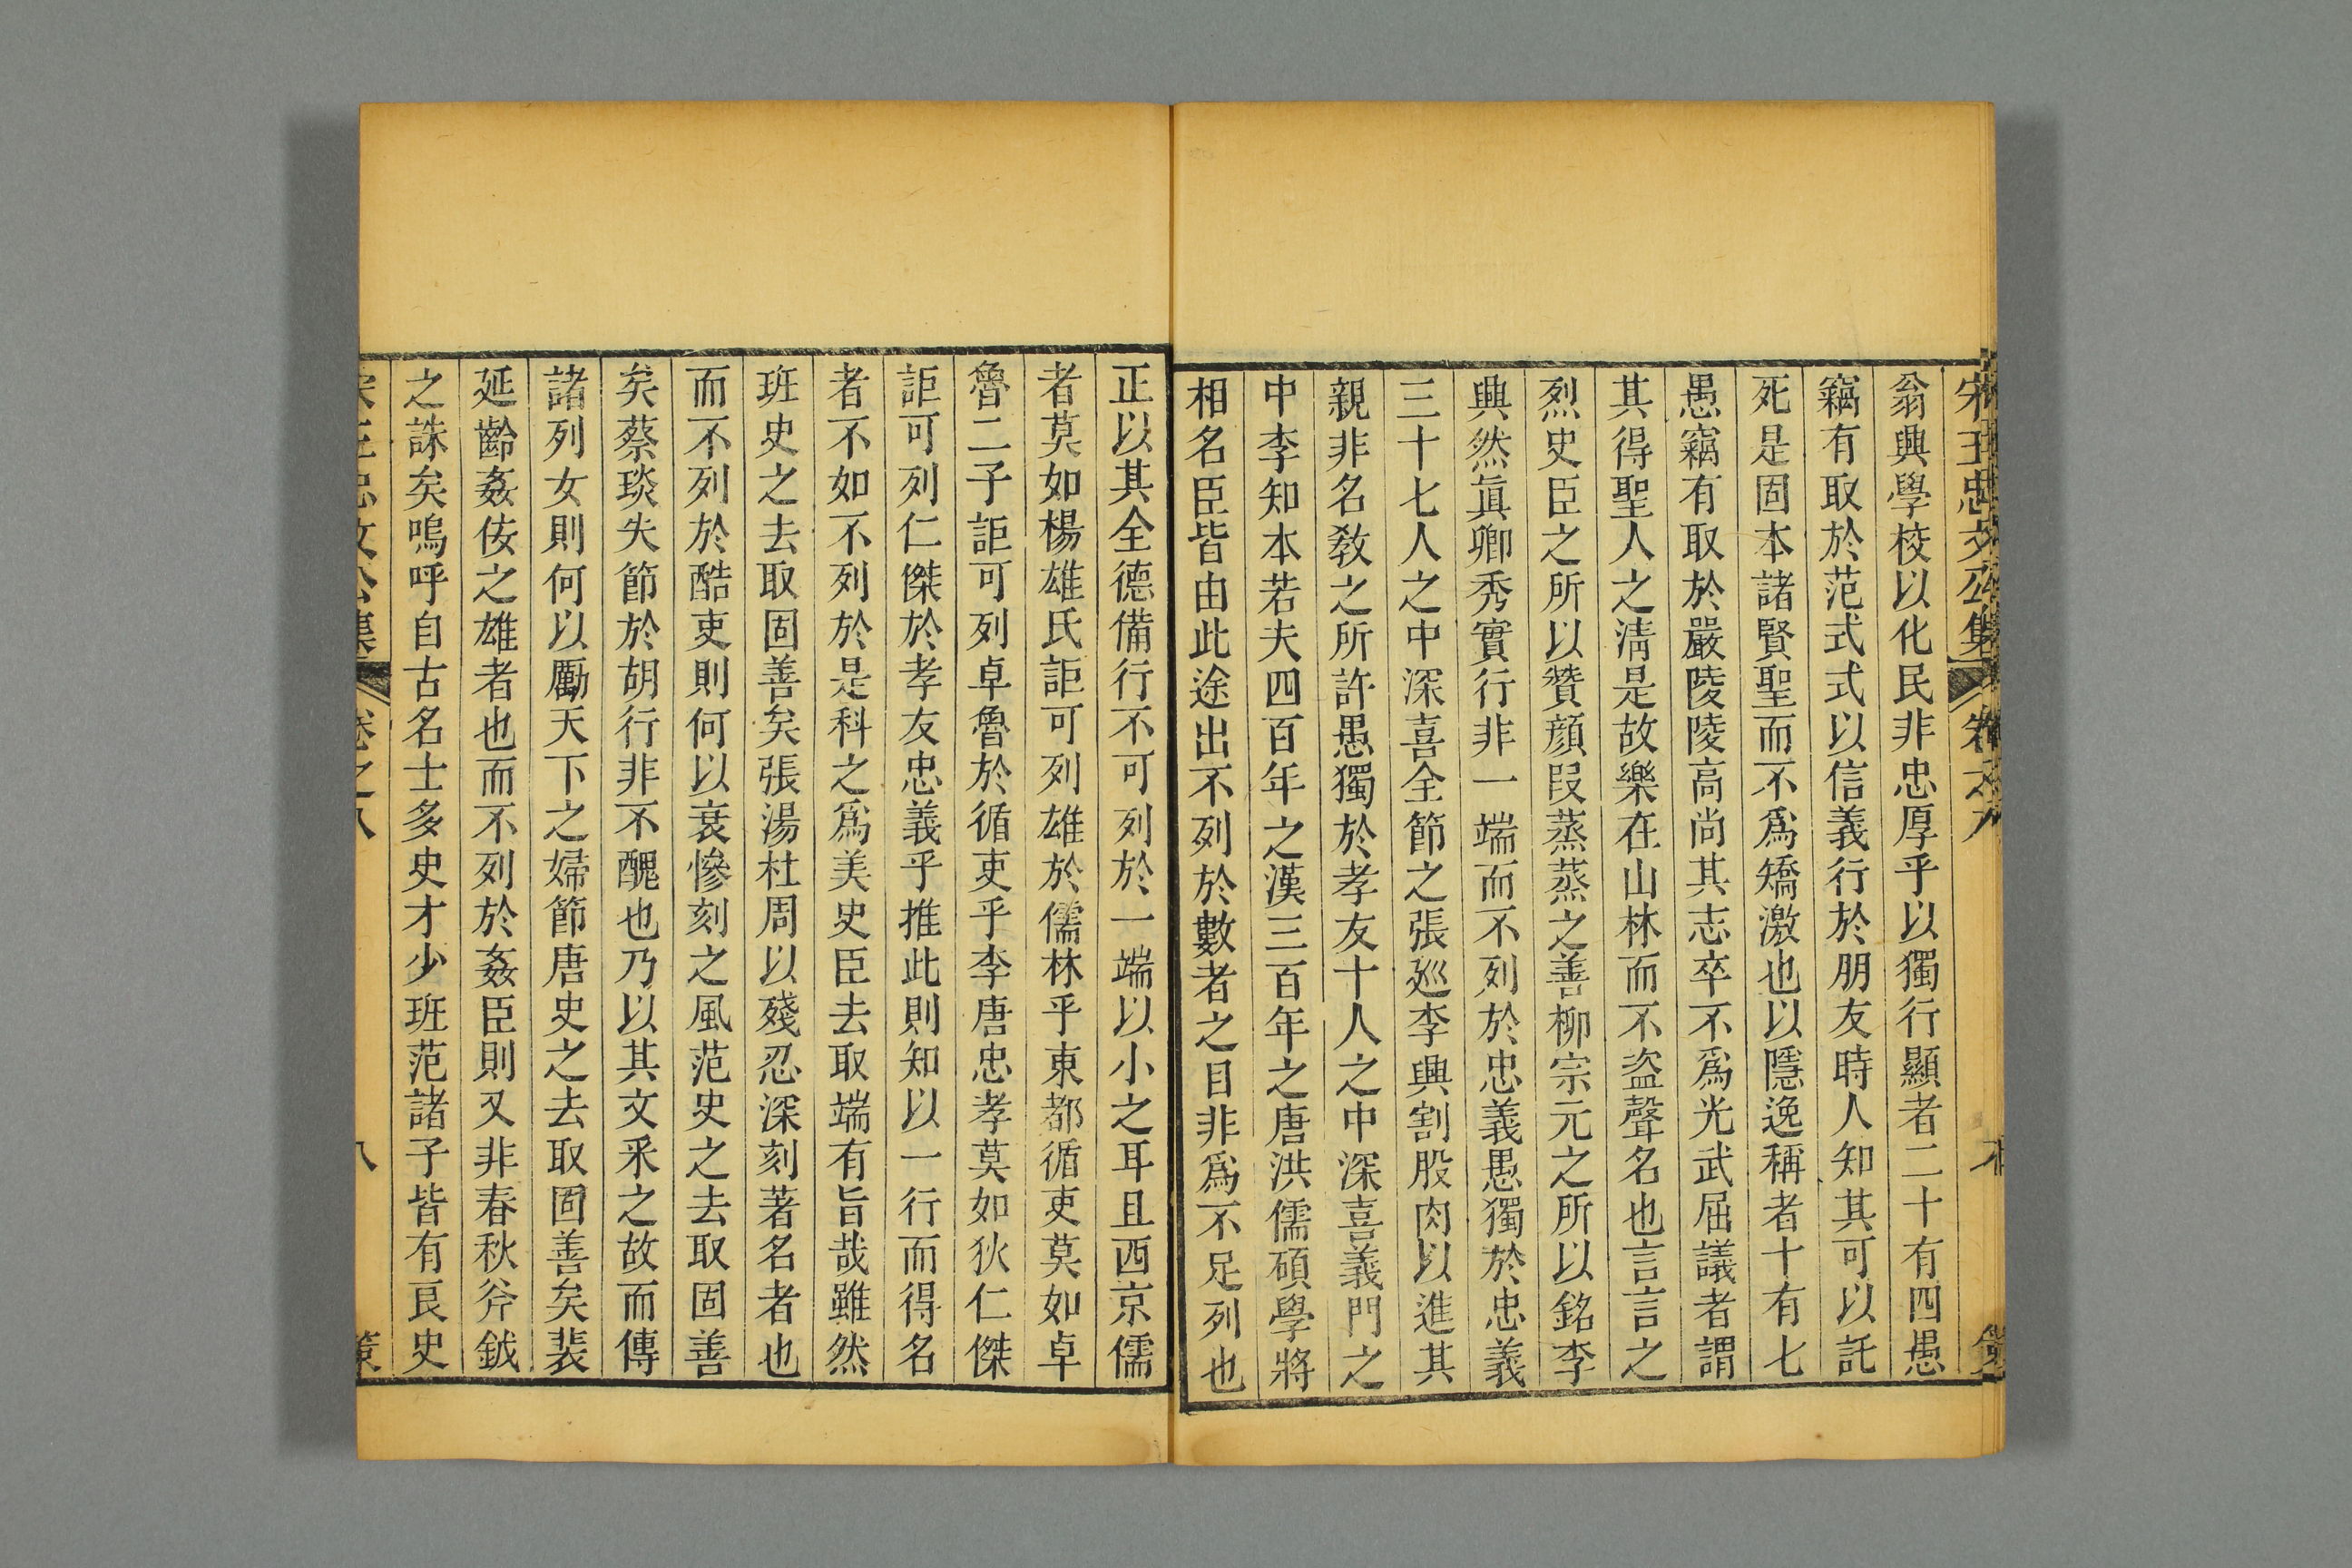 宋王忠文公集 卷之八
翁興學校以化民非忠厚乎以獨行顯者二十有四愚
竊有取於范式式以信義行於朋友時人知其可以託
死是固本諸賢聖而不爲矯激也以隱逸稱者十有七
愚竊有取於嚴陵陵高尚其志卒不爲光武屈議者謂
其得聖人之淸是故樂在山林而不盜聲名也言言之
烈史臣之所以贊顔叚蒸蒸之善柳宗元之所以銘李
興然眞卿秀實行非一端而不列於忠義愚獨於忠義
三十七人之中深喜全節之張廵李興割股肉以進其
親非名敎之所許愚獨於孝友十人之中深喜義門之
中李知本若夫四百年之漢三百年之唐洪儒碩學將
相名臣皆由此途出不列於數者之目非爲不足列也
正以其全德備行不可列於一端以小之耳且西京儒
者莫如楊雄氏詎可列雄於儒林乎東都循吏莫如卓
魯二子詎可列卓魯於循吏乎李唐忠孝莫如狄仁傑
詎可列仁傑於孝友忠義乎推此則知以一行而得名
者不如不列於是科之爲美史臣去取端有旨哉雖然
班史之去取固善矣張湯杜周以殘忍深刻著名者也
而不列於酷吏則何以衰慘刻之風范史之去取固善
矣蔡琰失節於胡行非不醜也乃以其文釆之故而傳
諸列女則何以勵天下之婦節唐史之去取固善矣裴
延齡姦侫之雄者也而不列於姦臣則又非春秋斧鉞
之誅矣嗚呼自古名士多史才少班范諸子皆有良史
宋王忠文公集 卷之八 八 策